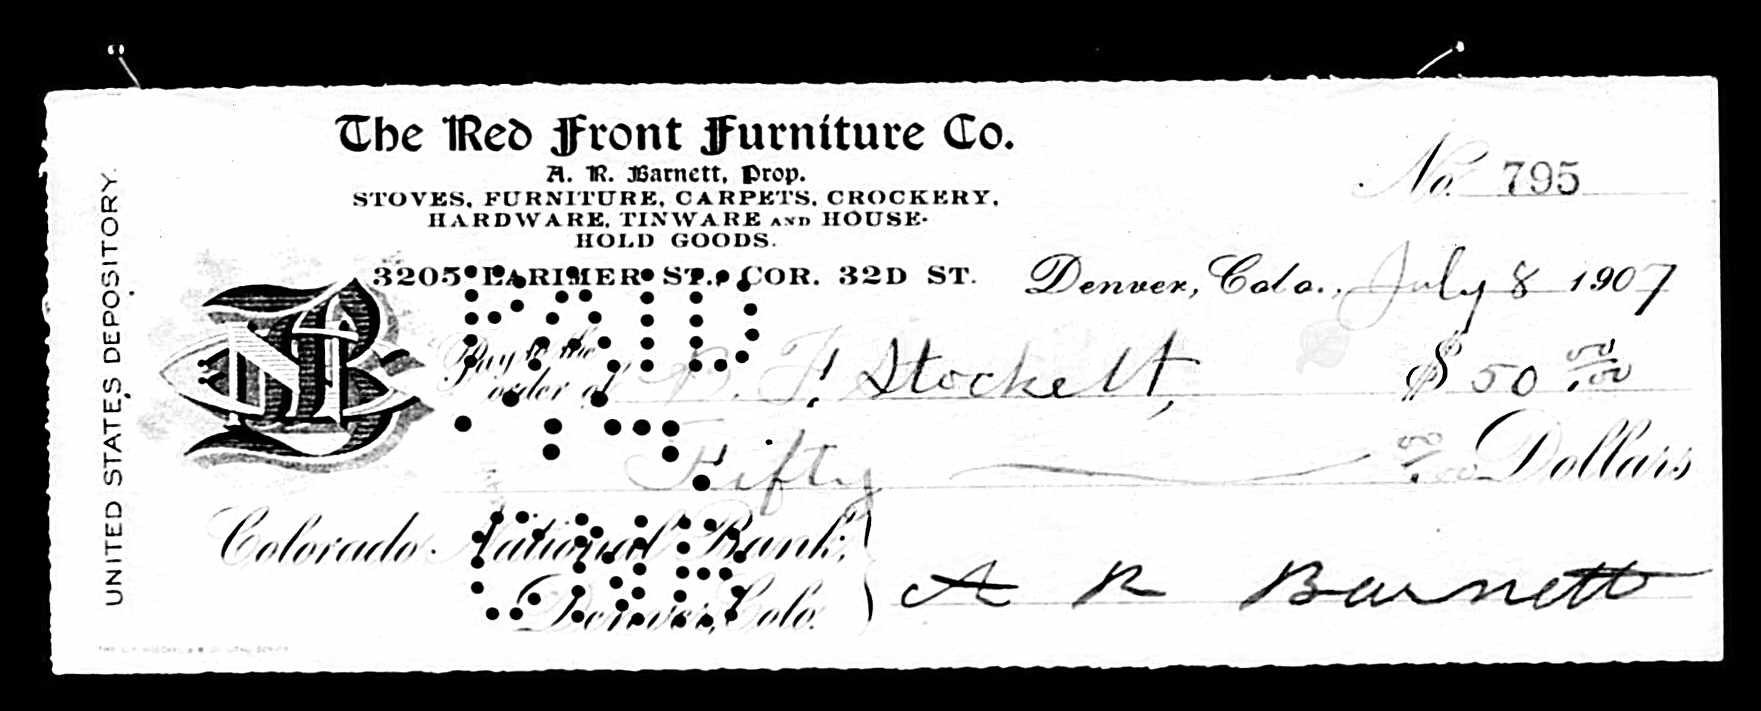 The Red Front Furniture Co.
A. R. Barnett, Prop.
STOVES, FURNITURE, CARPETS, CROCKERY,
HARDWARE, TINWARE AND HOUSE-
HOLD GOODS.
3205 LARIMER ST., COR. 32D ST.
No. 795
Denver, Colo., July 8 1907
PAID
Pay to the
order of F. Stockett, $ 50 00/100
Fifty 00/100 Dollars
Colorado National Bank,
Denver, Colo.
A R Barnett
UNITED STATES DEPOSITORY.
CNB